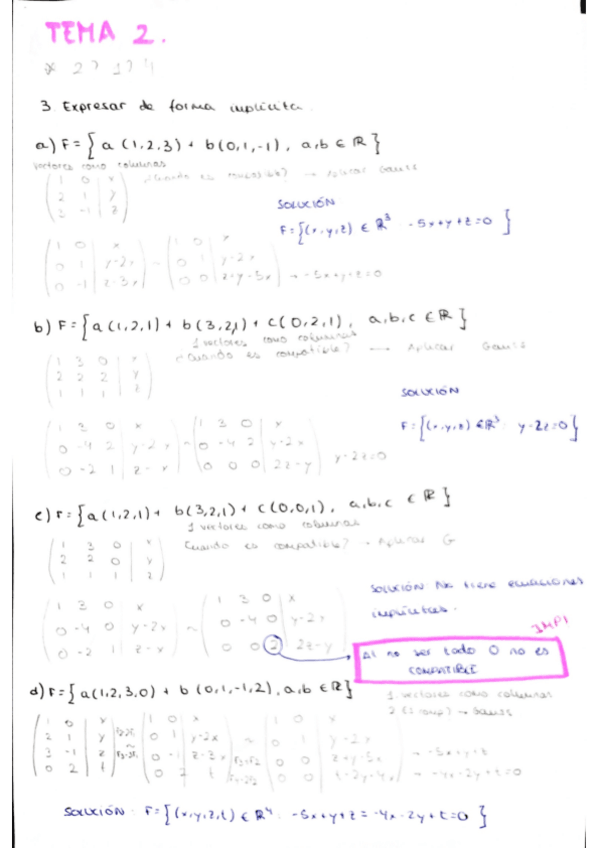 TEMA 2.
3 Expresar de forma implícita.
a) F = { a (1,2,3) + b(0,1,-1), a,b ∈ ℝ }
vectores como columnas
¿Cuando es compatible? → Aplicar Gauss
( 1 0 | x
2 1 | y
3 -1 | z )
SOLUCIÓN
F = {(x,y,z) ∈ ℝ³ -5x+y+z=0 }
( 1 0 | x
0 1 | y-2x
0 -1 | z-3x ) ~ ( 1 0 | x
0 1 | y-2x
0 0 | z+y-5x ) → -5x+y+z=0
b) F = { a(1,2,1) + b(3,2,1) + c(0,2,1), a,b,c ∈ ℝ }
1 vectores como columnas
¿Cuando es compatible? → Aplicar Gauss
( 1 3 0 | x
2 2 2 | y
1 1 1 | z )
SOLUCIÓN
F = {(x,y,z) ∈ ℝ³ y-2z=0 }
( 1 3 0 | x
0 -4 2 | y-2x
0 -2 1 | z-x ) ~ ( 1 3 0 | x
0 -4 2 | y-2x
0 0 0 | 2z-y ) y-2z=0
c) F = { a(1,2,1) + b(3,2,1) + c(0,0,1), a,b,c ∈ ℝ }
1 vectores como columnas
Cuando es compatible? → Aplicar G
( 1 3 0 | x
2 2 0 | y
1 1 1 | z )
SOLUCIÓN No tiene ecuaciones
implícitas.
( 1 3 0 | x
0 -4 0 | y-2x
0 -2 1 | z-x ) ~ ( 1 3 0 | x
0 -4 0 | y-2x
0 0 2 | 2z-y )
IMP!
Al no ser todo 0 no es
COMPATIBLE
d) F = { a(1,2,3,0) + b (0,1,-1,2), a,b ∈ ℝ }
1. vectores como columnas
2 → Gauss
( 1 0 | x
2 1 | y
3 -1 | z
0 2 | t ) ~ ( 1 0 | x
0 1 | y-2x
0 -1 | z-3x
0 2 | t ) ~ ( 1 0 | x
0 1 | y-2x
0 0 | z+y-5x
0 0 | t-2y+4x ) → -5x+y+z
→ -4x-2y+t=0
SOLUCIÓN: F = {(x,y,z,t) ∈ ℝ⁴ : -5x+y+z = -4x-2y+t=0 }